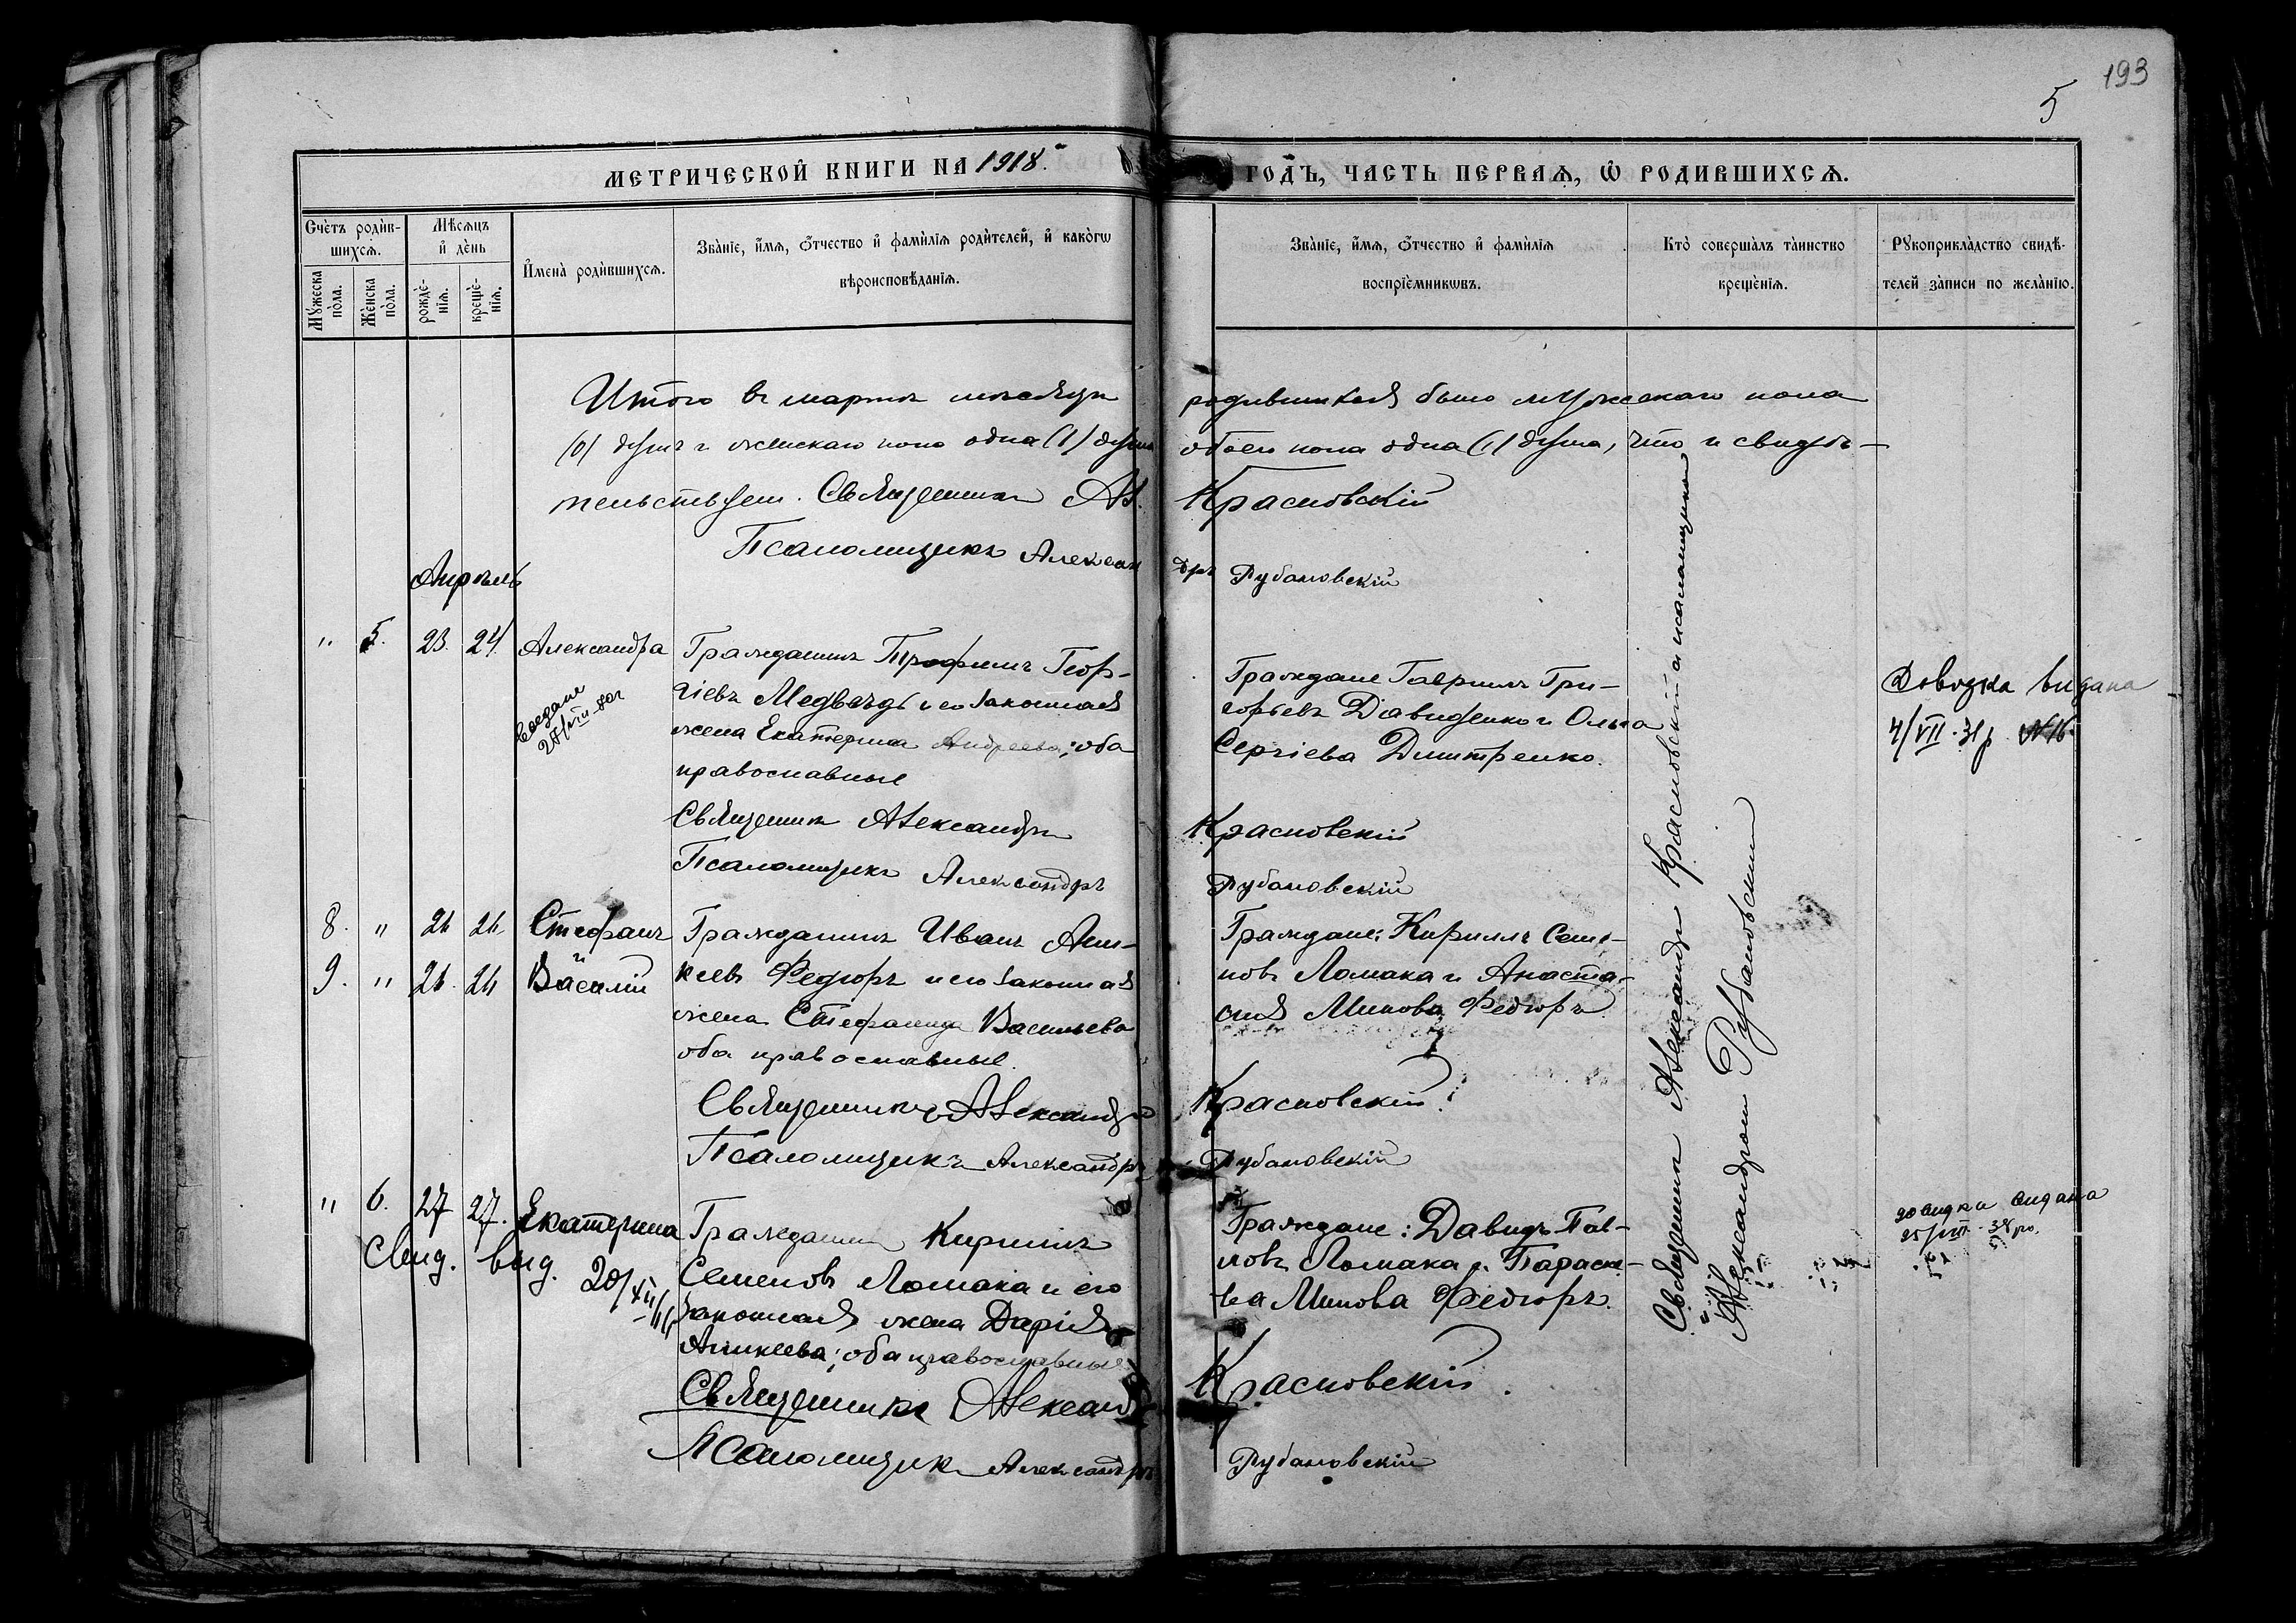 193
5
МЕТРИЧЕСКОЙ КНИГИ НА 1918. ГОДЪ, ЧАСТЬ ПЕРВАЯ, Ѡ РОДИВШИХСЯ.
Счетъ родив-
шихся.
Мужеска
пола.
Женска
пола.
Мѣсяцъ
и день
рожде-
нія.
креще-
нія.
Имена родившихся.
Званіе, имя, отчество и фамилія родителей, и какогѡ
вѣроисповѣданія.
Званіе, имя, отчество и фамилія
воспріемникѡвъ.
Кто совершалъ таинство
крещенія.
Рукоприкладство свидѣ-
телей записи по желанію.
Итого въ мартѣ мѣсяцѣ родившихся было мужескаго пола
(0) душъ и женскаго пола одна (1) душа обоего пола одна (1) душа, что и свидѣ-
тельствуем. Священникъ Ал. Красновскій
Псаломщикъ Александръ Рубановскій
Апрѣль
" 5. 23. 24. Александра
Гражданинъ Трофимъ Геор-
гіевъ Медвѣдь и его законная
жена Екатерина Андреева; оба
православные
Священникъ Александръ Красновскій
Псаломщикъ Александръ Рубановскій
Граждане Гавриилъ Гри-
горьевъ Давиденко и Ольга
Сергіева Дмитренко.
Довидка видана
4/VII-31 р. №16
8. " 24 24 Стефанъ
и
9. " 24. 24 Василій
Гражданинъ Иванъ Ани-
кеевъ Федюръ и его законная
жена Стефанида Васильева
оба православные.
Священникъ Александръ Красновскій
Псаломщикъ Александръ Рубановскій
Граждане: Кириллъ Семе-
новъ Ломака и Анаста-
сия Минова Федюръ
" 6. 27 27. Екатерина
Свид. выд. 20/XII
Гражданинъ Кириллъ
Семеновъ Ломака и его
законная жена Дарія
Аникеева; оба православные
Священникъ Александръ Красновскій.
Псаломщикъ Александръ Рубановскій
Граждане: Давидъ Пав-
ловъ Ломака и Параске-
ва Минова Федюръ.
довидка видана
Священник Александръ Красновскій и псаломщиком
Александром Рубановским